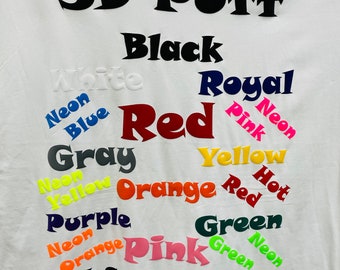 3D Puff
Black
White
Royal
Neon
Blue
Neon
Pink
Red
Gray
Yellow
Neon
Yellow
Orange
Hot
Red
Purple
Green
Neon
Orange
Pink
Neon
Green